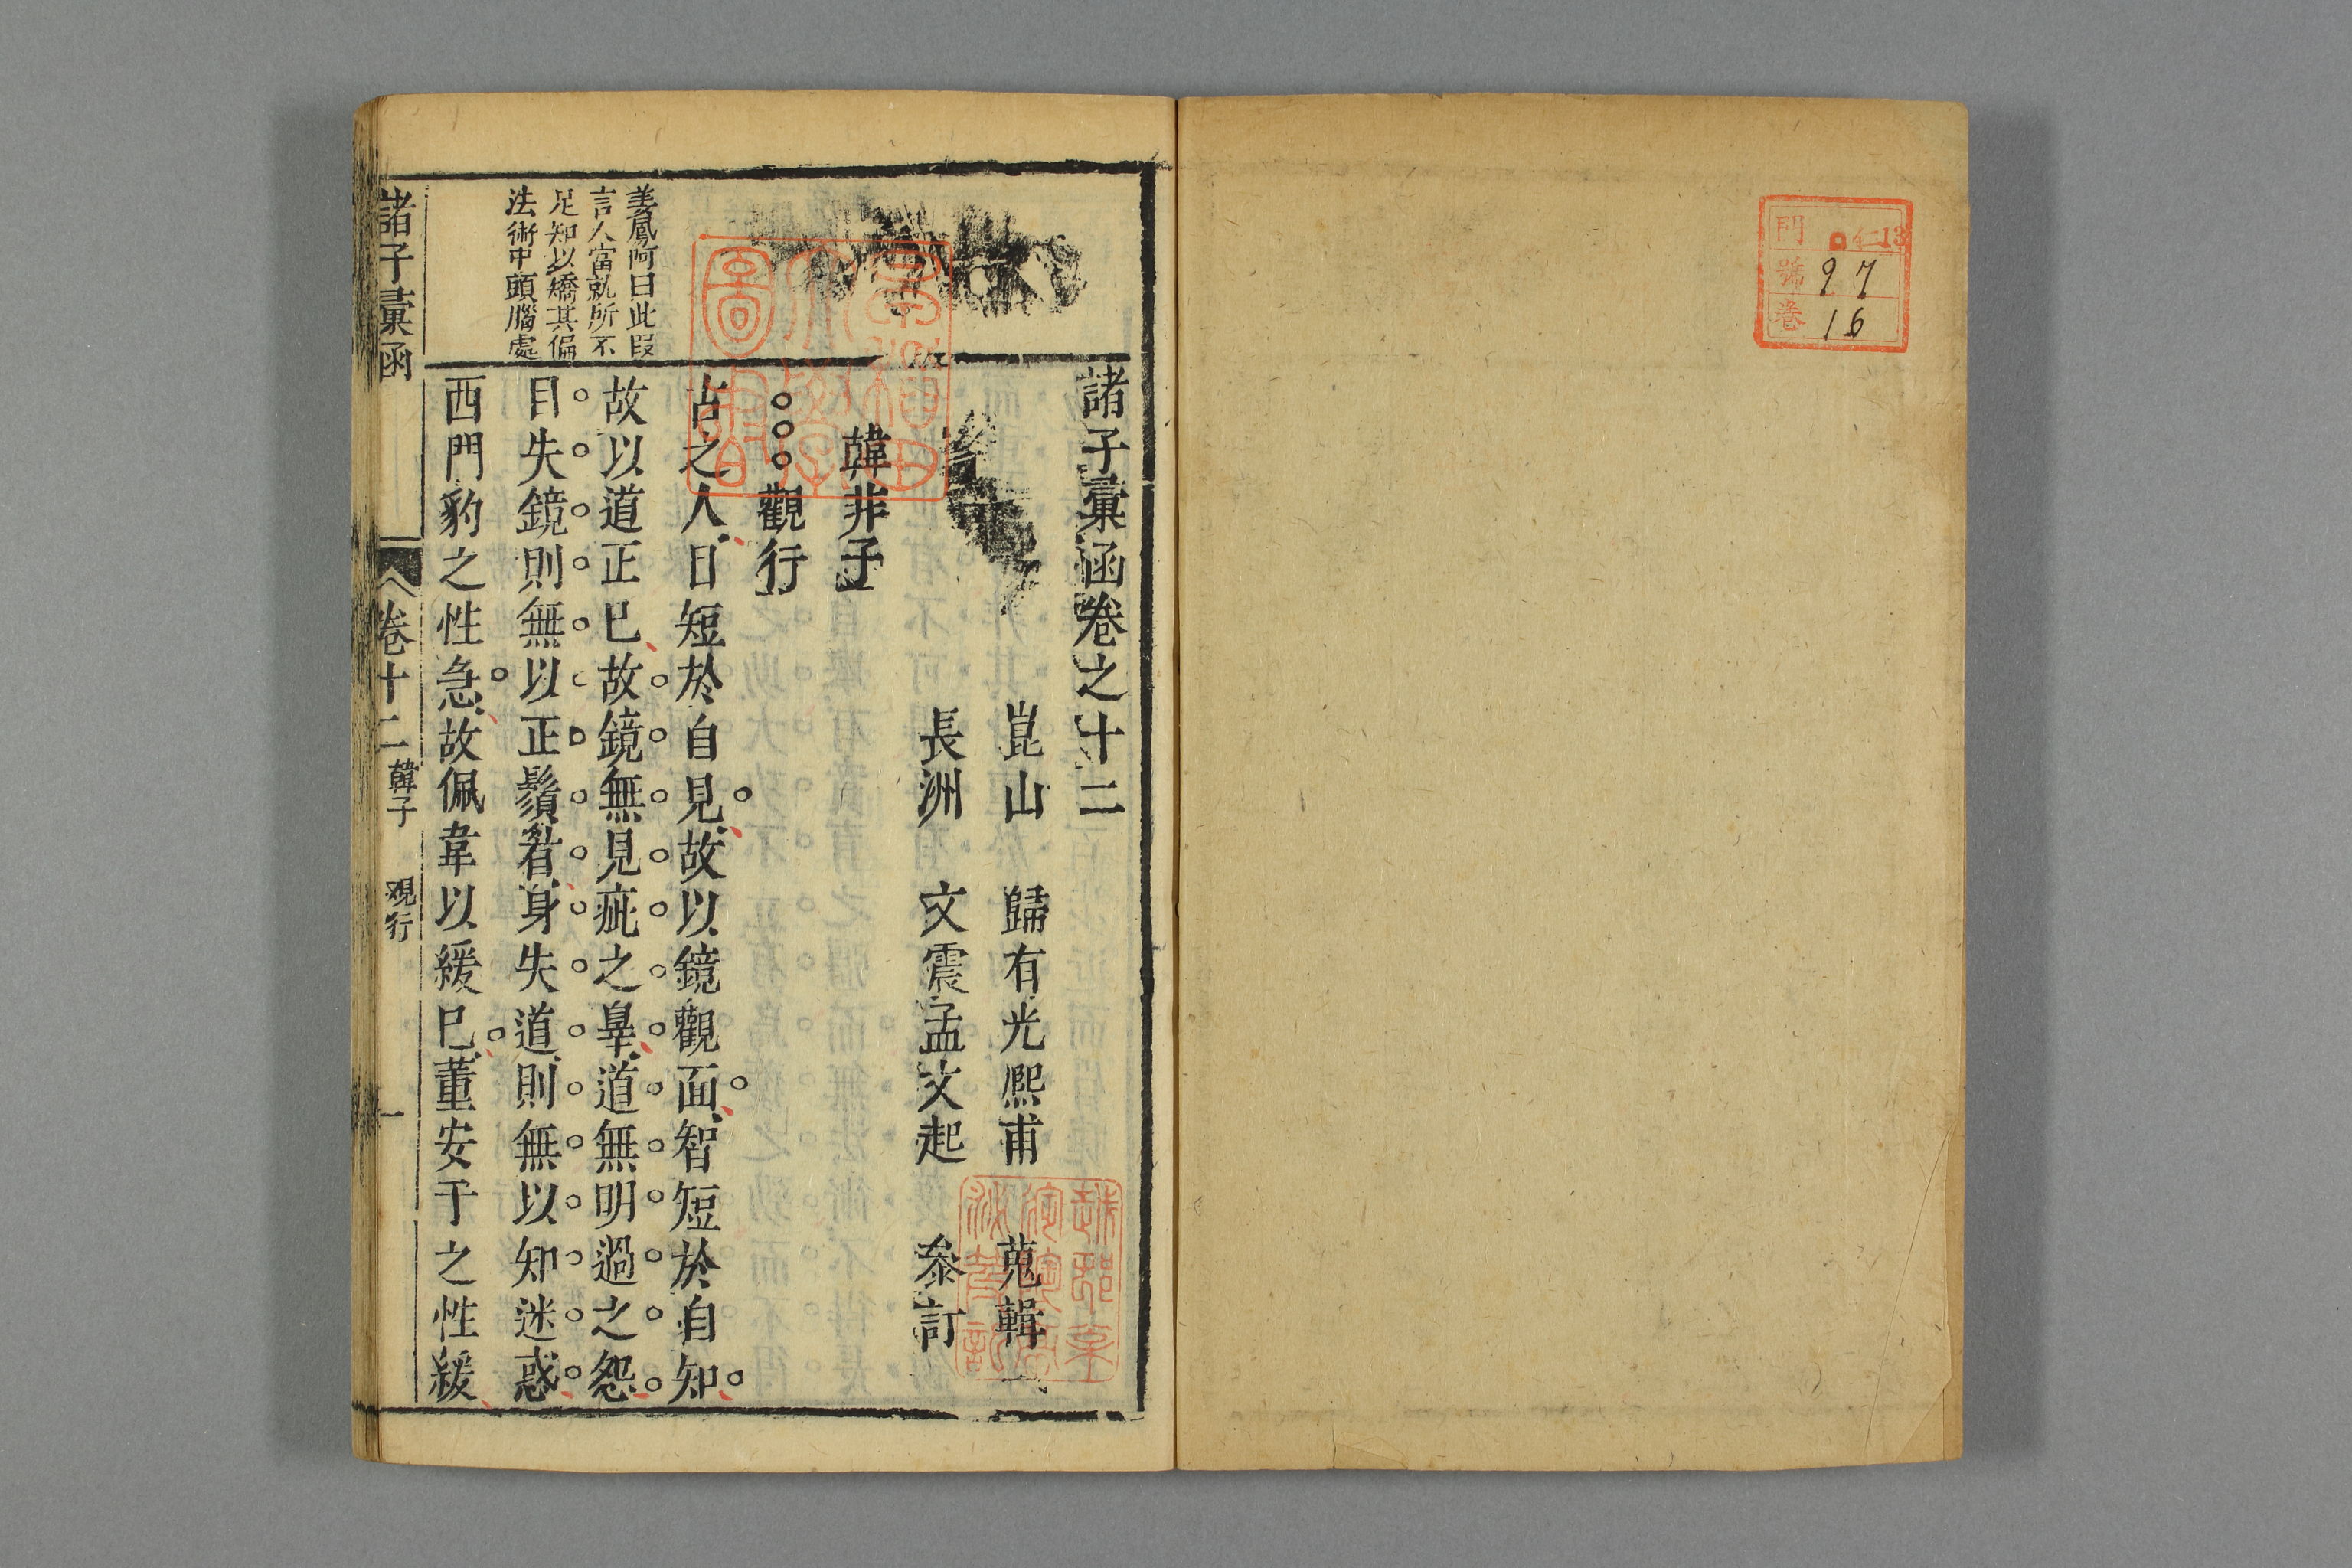 門 口仁13
號 97
卷 16
諸子彙函卷之十二
崑山 歸有光熈甫 蒐輯
長洲 文震孟文起 叅訂
韓非子
觀行
古之人目短於自見故以鏡觀面智短於自知
故以道正己故鏡無見疵之辠道無明過之怨
目失鏡則無以正鬚眉身失道則無以知迷惑
西門豹之性急故佩韋以緩己董安于之性緩
姜鳳阿曰此段
言人當就所不
足知以矯其偏
法術中頭腦處
諸子彙函
卷十二 韓子 觀行 一